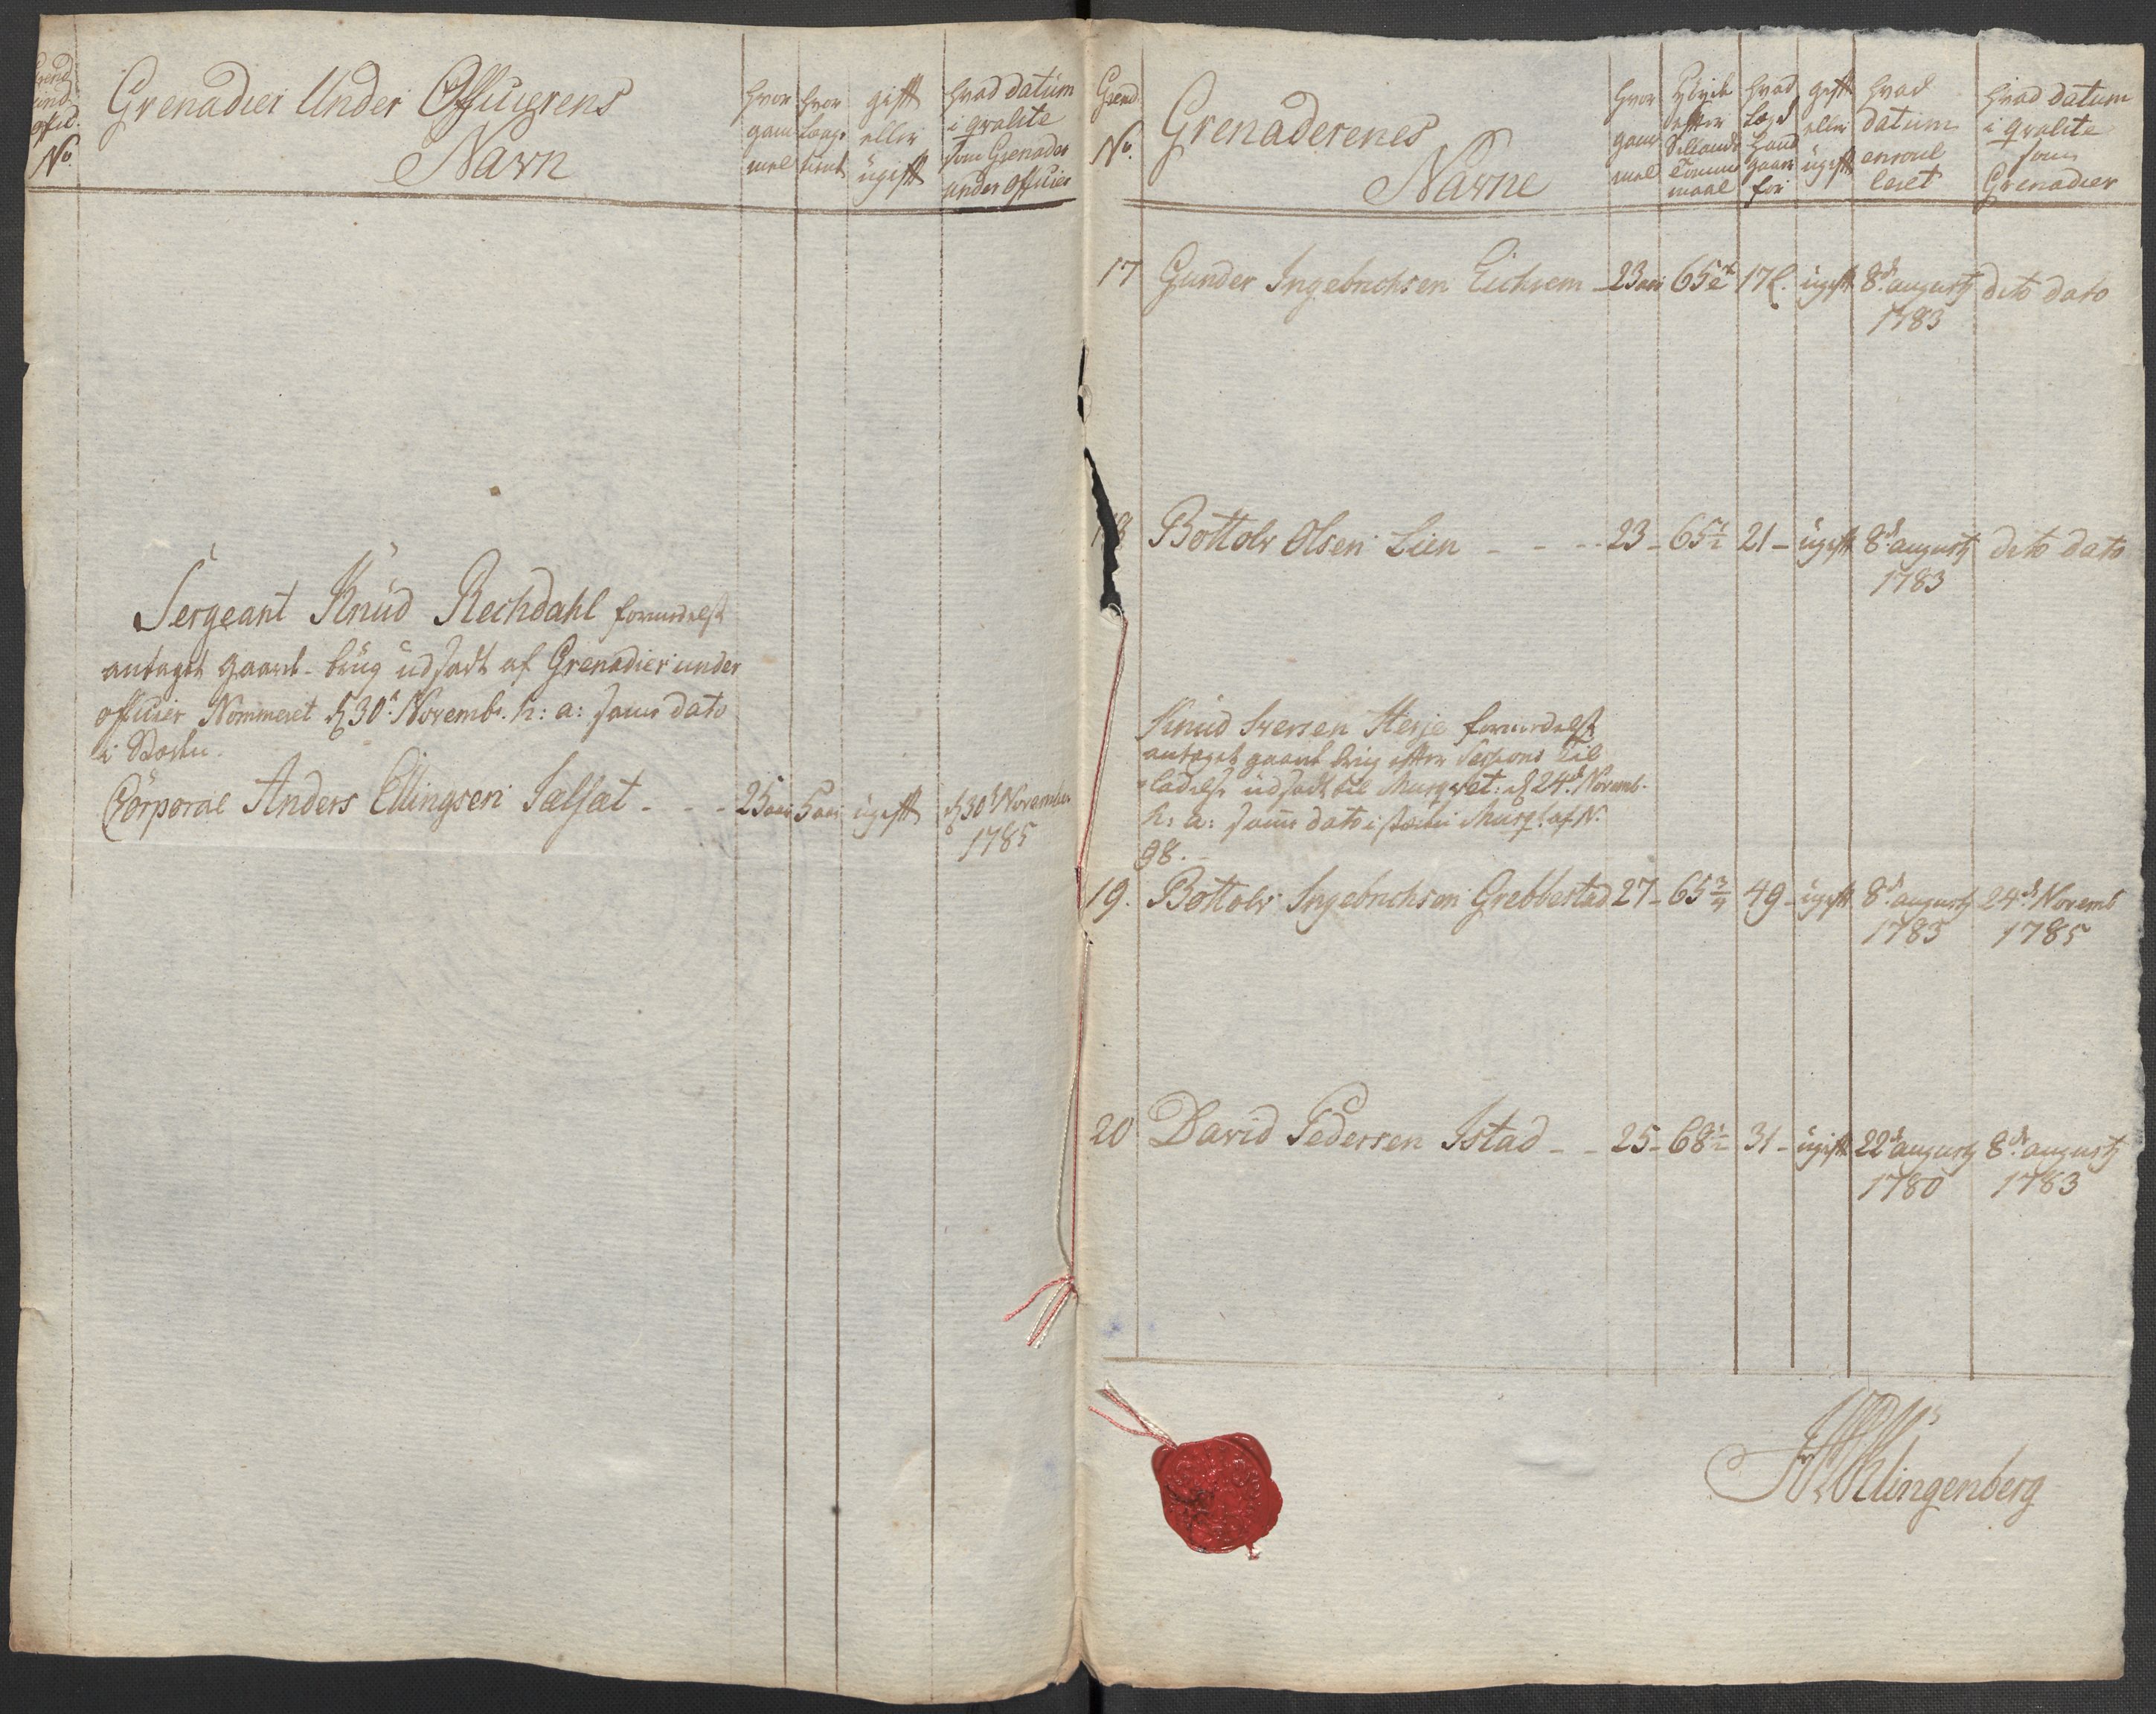 Grenadier Under Officierens
Navn
No.
hvor gam mel
hvor længe tient
gift eller ugift
hvad datum i qvalite som Grenadeer under officier
Sergeant Knud Rechdahl formedelst
antaget gaard-brug udsadt af Grenadier under
officier Nommeret d 30te Novembr. h: a: samme dato
i Stæden.
Corporal Anders Ellingsen Talsat - - - 25 aar 5 aar ugift d 30te November
1785
Grend
No.
Grenaderenes
Navne
hvor gam mel
Höyde efter Sellands Tomme maal
hvad Lægd hand gaar for
gift eller ugift
hvad datum enroul leret
hvad datum i qvalite som Grenadier
17 Gunder Ingebrichsen Eichrem - 23 aar 65 17 L. ugift 8de augustj deto dato
1783
18 Bottolv Olsen Lien - - - 23 - 65½ 21 - ugift 8de augustj deto dato
1783
Knud Iversen Herje formedelst
antaget gaard brug efter Sessions til
ladelse udsadt til Musqvet: d 24de Novemb.
h: a: samme dato i stæden Musq: af No.
98.
19. Bottolv Ingebrichsen Grebbestad 27 - 65¾ 49 - ugift 8de augustj 24de Novemb
1783 1785
20 David Pedersen Istad - - 25 - 68½ 31 - ugift 22de augustj 8de augustj
1780 1783
Klingenberg